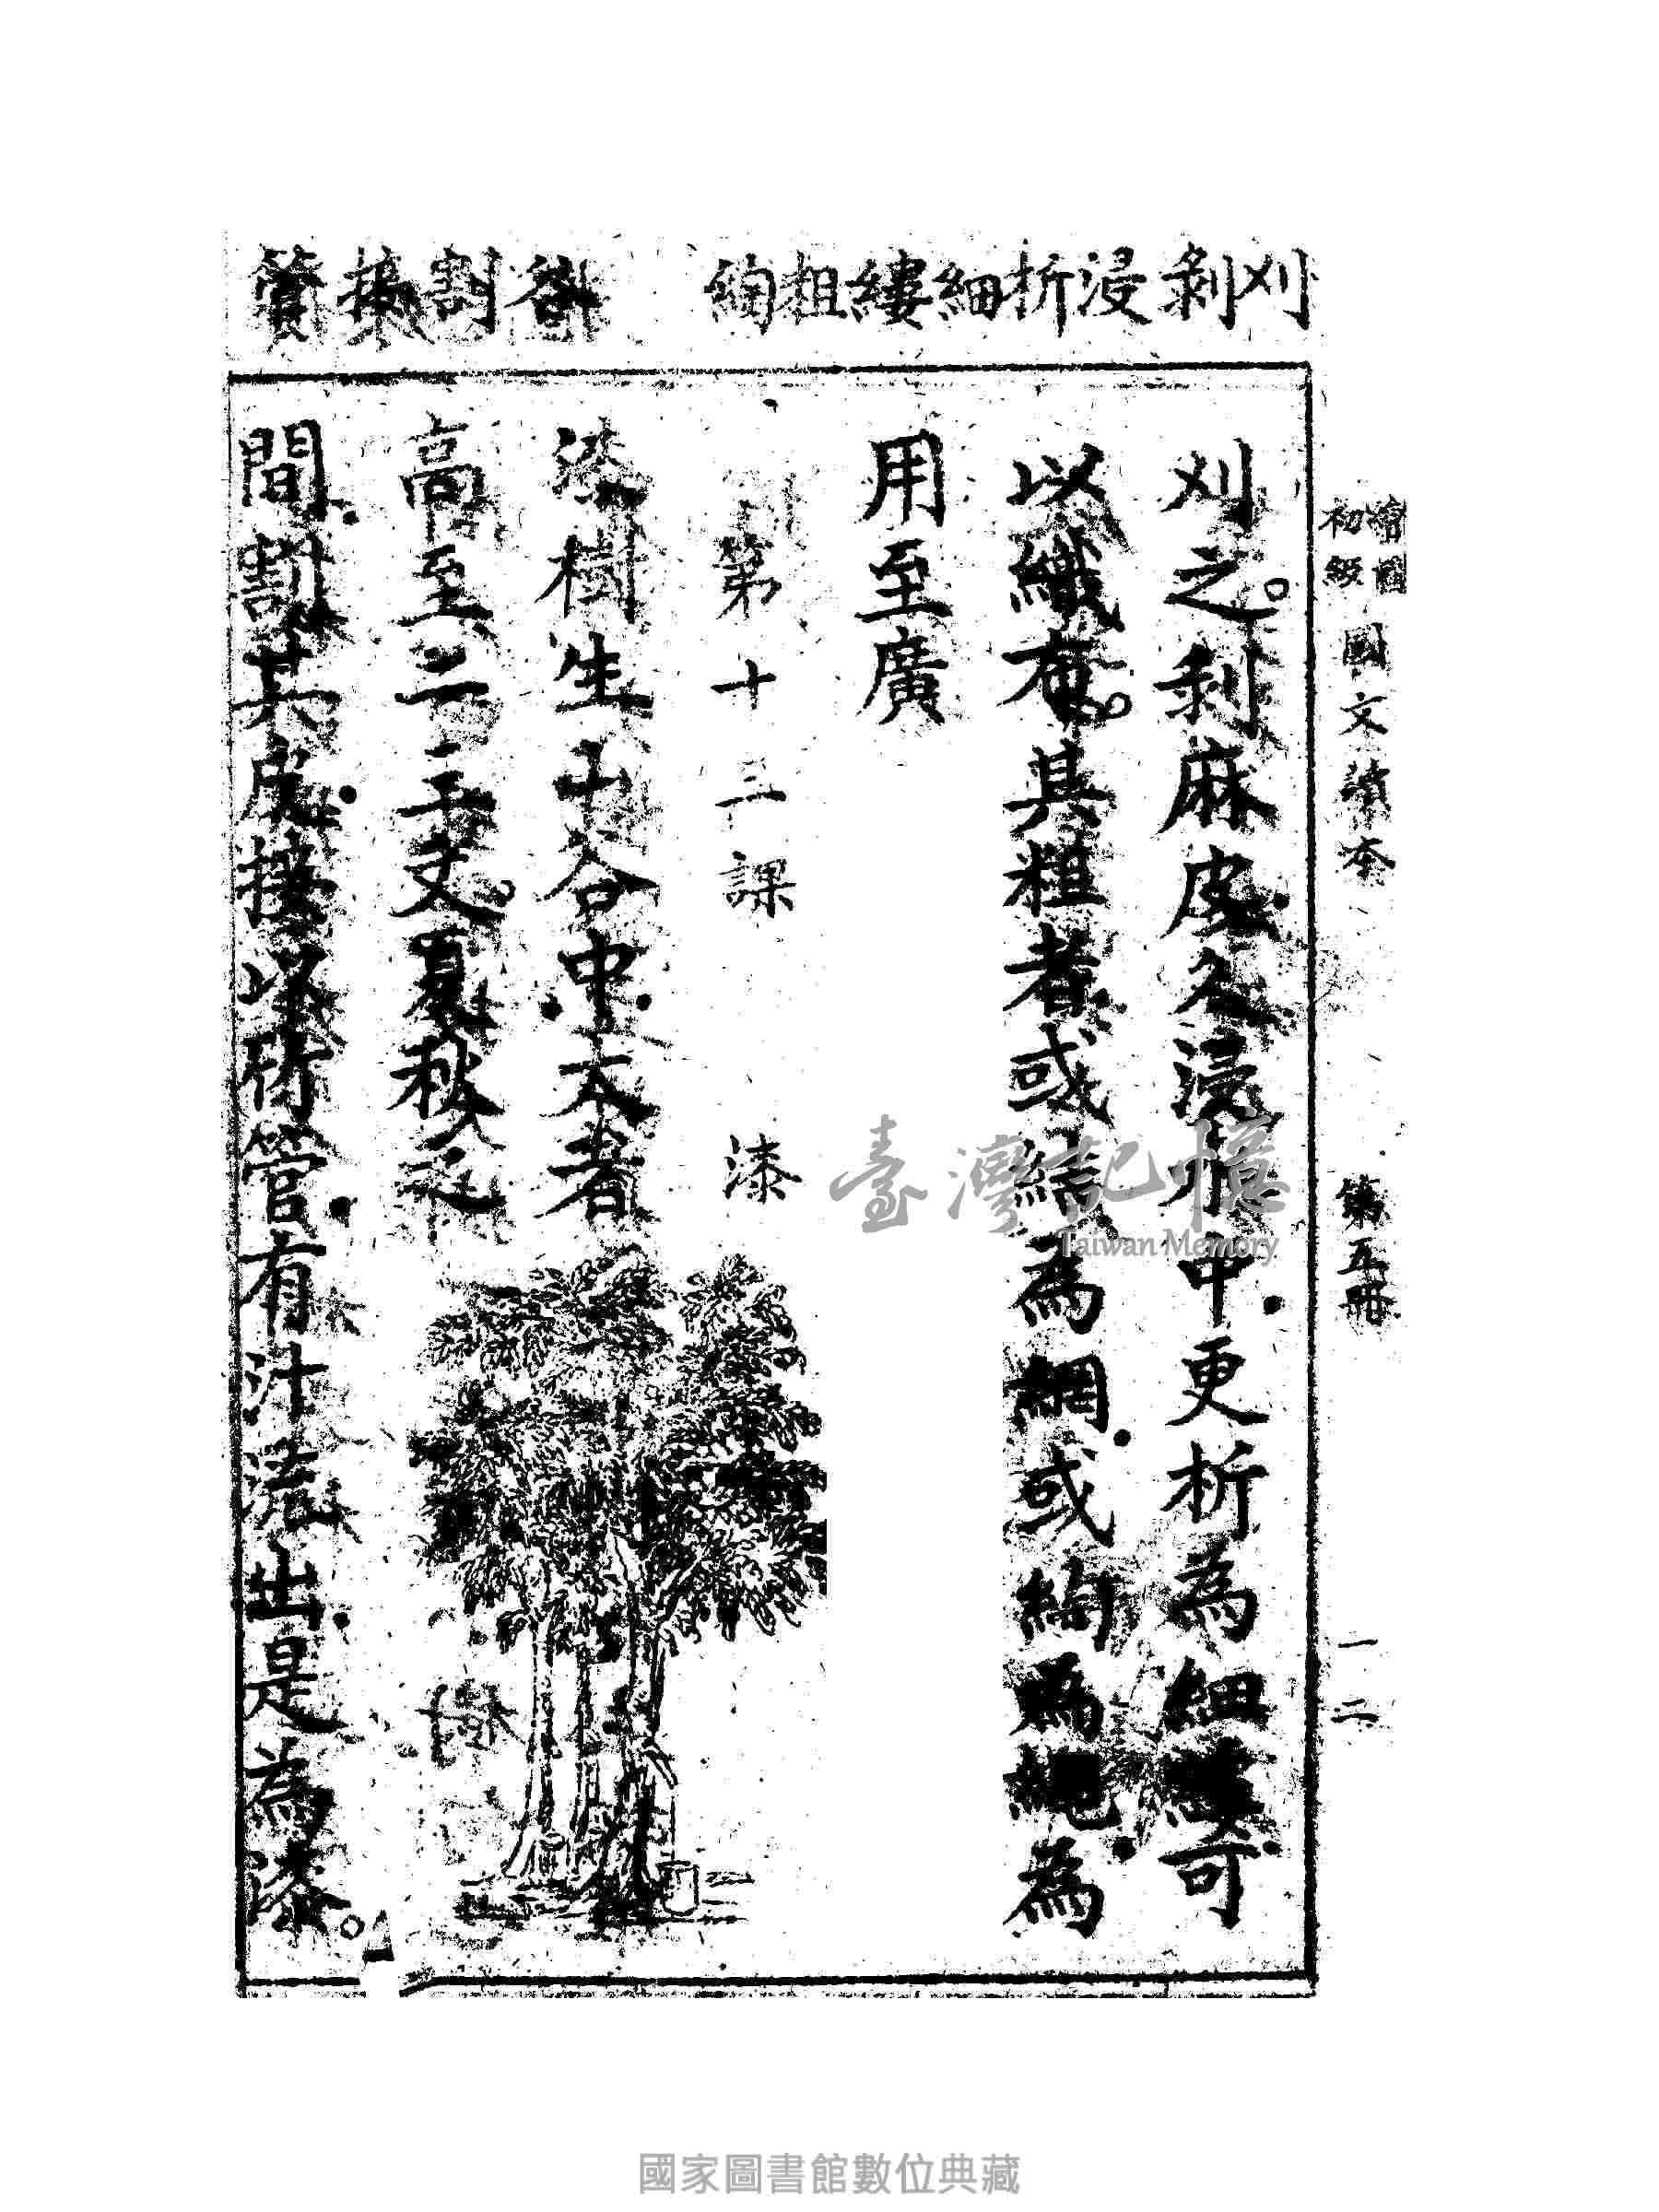 繪圖
初級
國文讀本
第五冊
一二
刈剝浸析細縷粗綯
谷割接管
刈之。剝麻皮久浸水中更析為細縷可
以織布。其粗者或結為網或綯為繩為
用至廣
第十三課 漆
漆樹生山谷中大者
高至二三丈。夏秋之
間割其皮接以竹管有汁流出是為漆。
臺灣記憶
Taiwan Memory
國家圖書館數位典藏